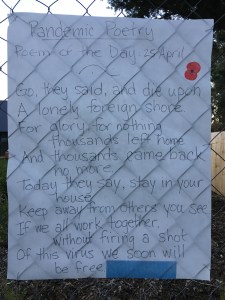 Pandemic Poetry
Poem for the Day 25 April
Go, they said, and die upon
A lonely foreign shore
For glory, for nothing
thousands left home
And thousands came back
no more.
Today they say, stay in your
house
Keep away from others you see
If we all work together,
without firing a shot
Of this virus we soon will
be free